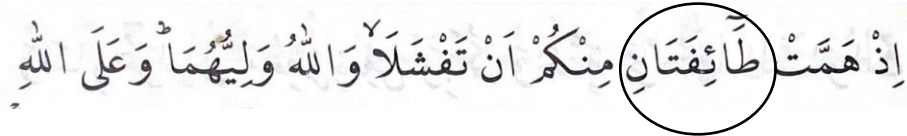 اِذْ هَمَّتْ طَآئِفَتَانِ مِنْكُمْ اَنْ تَفْشَلَاۙ وَاللّٰهُ وَلِيُّهُمَاؕ وَعَلَى اللّٰهِ